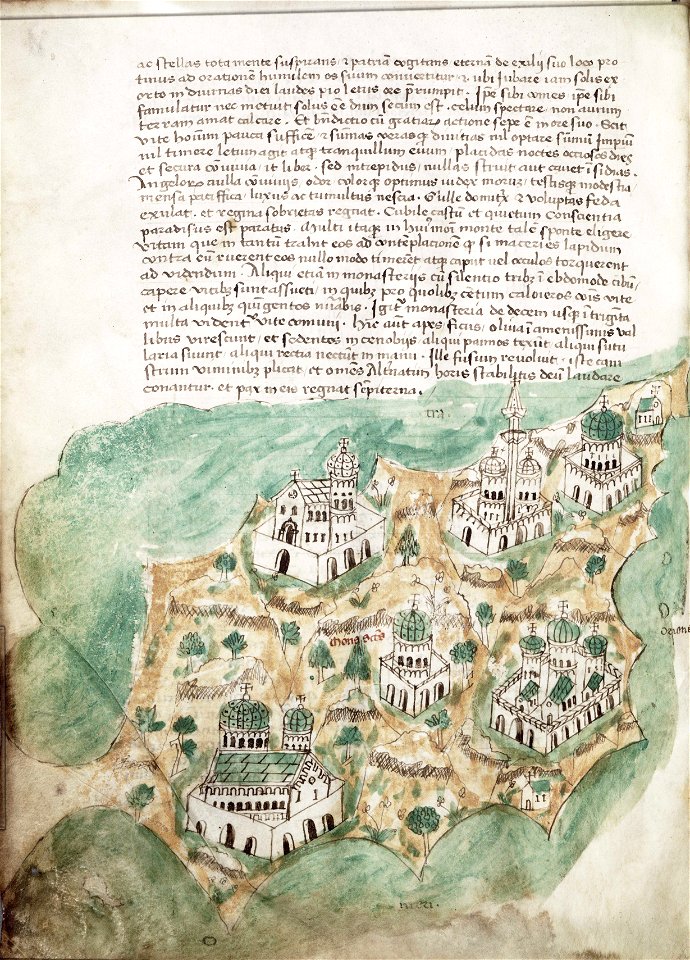 ac stellas tota mente suspirans, & patriam cogitans eternā de exilij suo loco pro
tinus ad orationē humilem os suum convertitur, & ubi Jubare iam solis ex
orto in diurnas diei laudes pio letus ore prērumpit. Ipse sibi comes ipse sibi
famulatur nec metuit solus eē dum secum est. celum spectare non aurum
terram amat calcare. Et bn̄dictio cū gratiarꝫ actione sepe ē in ore suo. Scit
vite hominū pauca sufficere & summas verasqꝫ divitias nil optare summū Imperiū
nil timere letum agit atqꝫ tranquillum evum, placidas noctes occiosos dies
et secura convivia, it liber. sed intrepidus, nullas struit aut cavet īsidias.
Angelorꝫ aulla convivijs, odor colorqꝫ optimus iudex morum testisqꝫ modestia
mensa paciffica, luxus ac tumultus nescia. Gulle domitrix & voluptas feda
exulat. et regina sobrietas regnat. Cubile castū et quietum Conscientia
paradisus est paratus. Multi itaqꝫ in huiꝰmōi monte talē sponte eligere
vitam que in tantū trahit eos ad contēplacionem qꝫ si maceries lapidum
contra eū ruerent eos nullo modo timerēt atqꝫ caput vel occulos torquerent
ad videndum. Aliqui etiā in monasterijs cū silentio tribꝫ ī ebdomode cibū
capere vicibꝫ sunt assueti, in quibꝫ pro quolibꝫ cētum caloieros cōis vite
et in aliquibꝫ quīgentos nūabis. Igitꝰ monasteria de decem usqꝫ ī trigīta
multa videntꝰ vite comunis. hic aut apes ficus, oliva ī amenissimis val
libus virescunt, et sedentes in cenobijs aliqui pannos texūt aliqui sutu
laria suunt, aliqui recia nectūt in manu. Ille fusum revoluit, iste cani
strum viminibus plicat, et omēs Alternatum horis stabilitis deū laudare
conantur. et pax in eis regnat sēpiterna.
tra.
mons sctūs